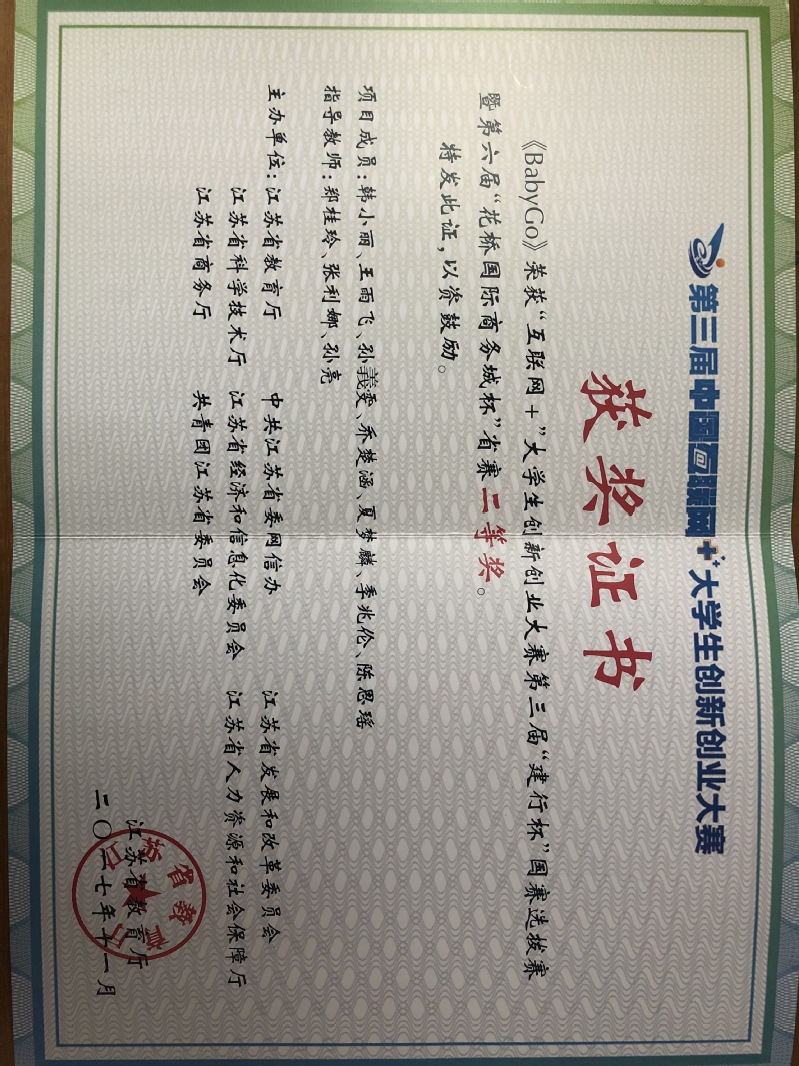 第三届中国互联网+大学生创新创业大赛
获奖证书
《BabyGo》荣获“互联网+”大学生创新创业大赛第三届“建行杯”国赛选拔赛
暨第六届“花桥国际商务城杯”省赛二等奖。
特发此证，以资鼓励。
项目成员：韩小丽、王雨飞、孙義雯、乔楚涵、夏梦麟、季兆伦、陈思瑶
指导教师：郑桂玲、张利娜、孙亮
主办单位：江苏省教育厅 中共江苏省委网信办 江苏省发展和改革委员会
江苏省科学技术厅 江苏省经济和信息化委员会 江苏省人力资源和社会保障厅
江苏省商务厅 共青团江苏省委员会
江苏省教育厅
二〇一七年十一月